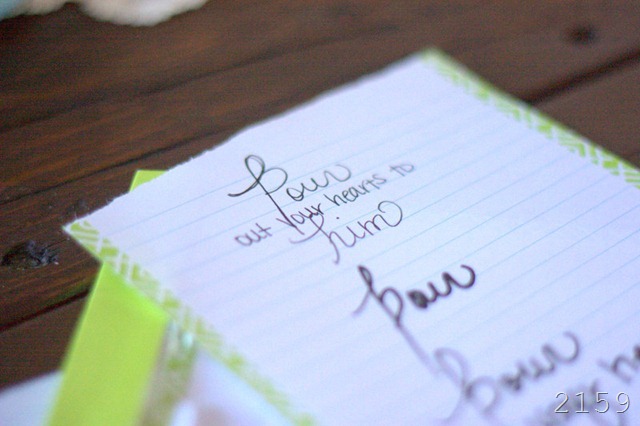 Pour
out your hearts to
him
Pour
Pour
your
2159